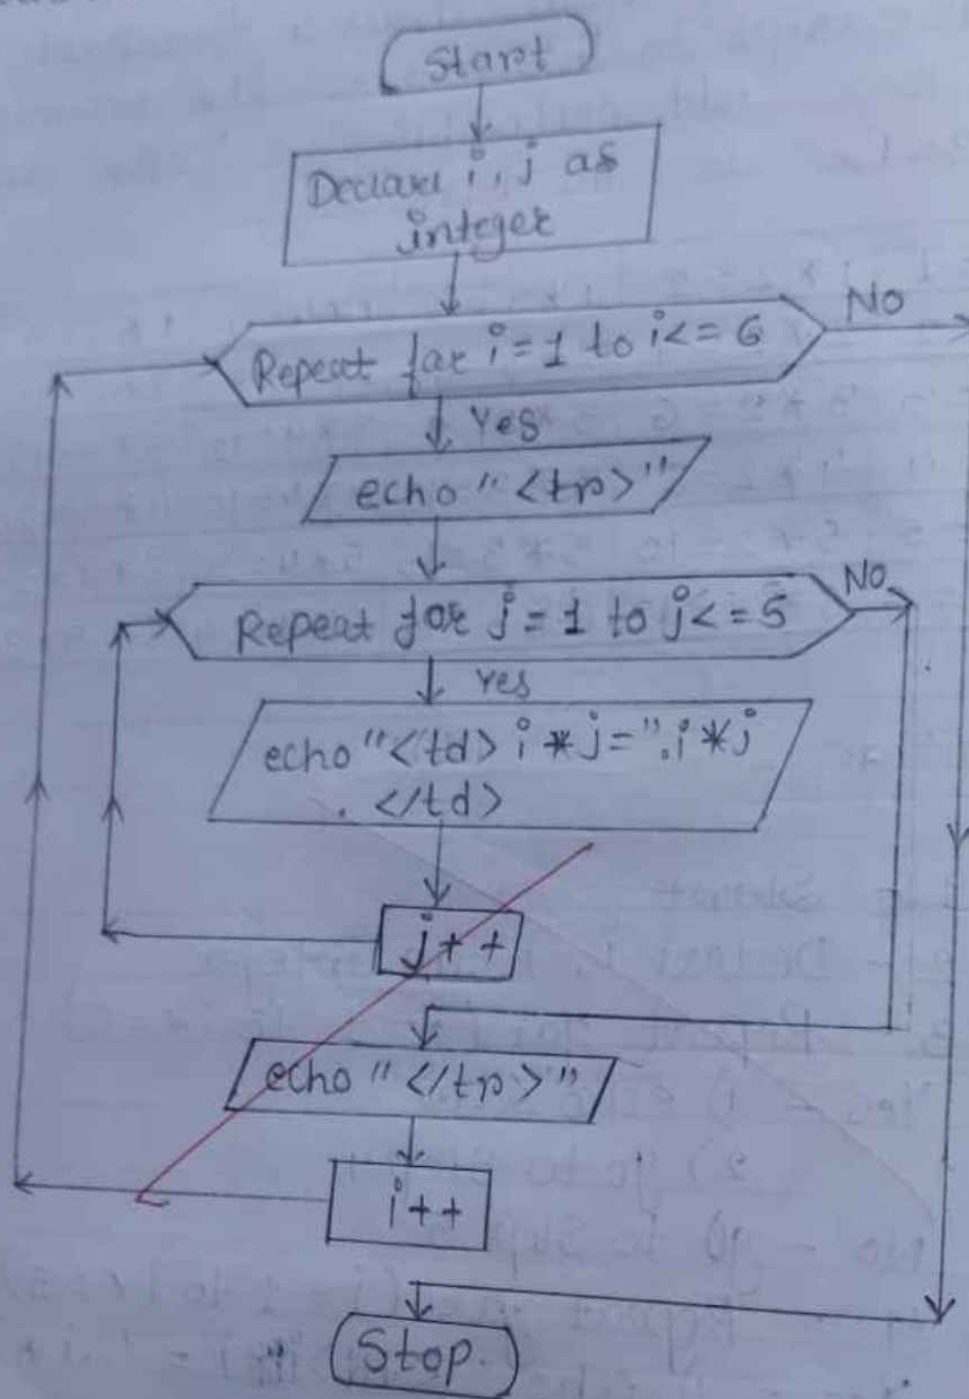 Start
Declare i, j as
integer
Repeat for i=1 to i<=6
No
Yes
echo "<tr>"
Repeat for j=1 to j<=5
No
Yes
echo"<td> i*j=".i*j
. </td>
j++
echo "</tr>"
i++
Stop.